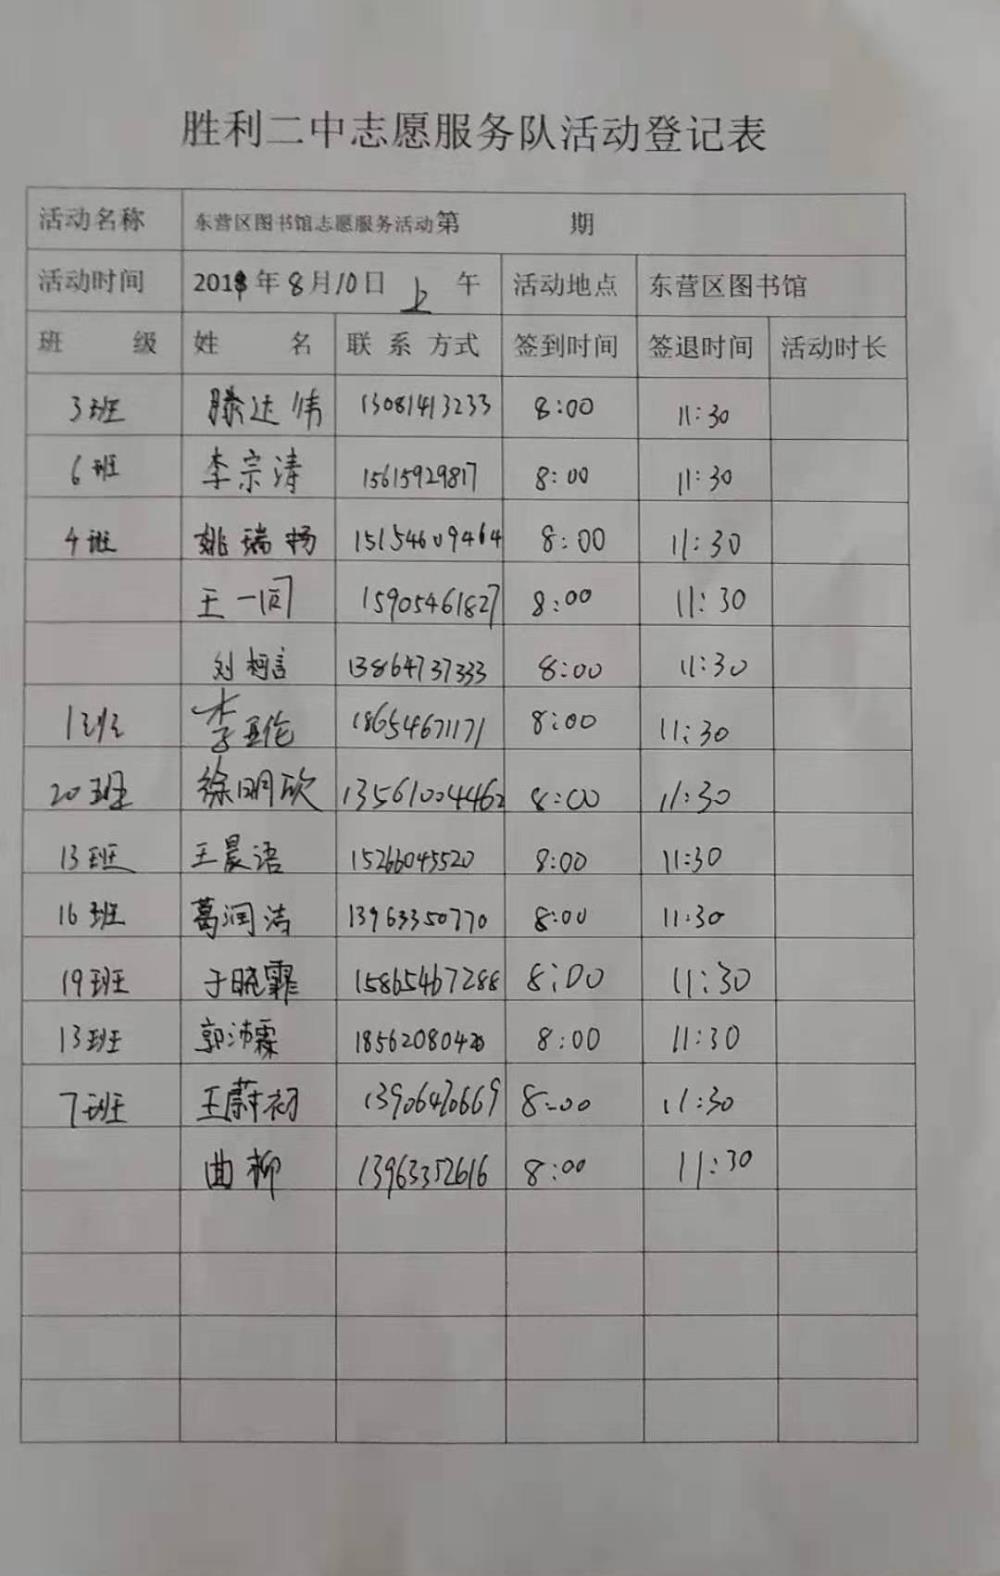 胜利二中志愿服务队活动登记表
活动名称 东营区图书馆志愿服务活动第 期
活动时间 2019年8月10日 上 午 活动地点 东营区图书馆
班 级 姓 名 联系方式 签到时间 签退时间 活动时长
3班 滕达伟 13081413233 8:00 11:30
6班 李宗涛 15615929817 8:00 11:30
4班 姚瑞扬 15154609464 8:00 11:30
王一同 15905461827 8:00 11:30
刘柯言 13864737333 8:00 11:30
1班 李亚伦 18654671171 8:00 11:30
20班 徐明欣 13561004462 8:00 11:30
13班 王晨语 15266045520 8:00 11:30
16班 葛润洁 13963350770 8:00 11:30
19班 于晓霏 15865467288 8:00 11:30
13班 郭沛霖 8:00 11:30
7班 王蔚初 13906470669 8:00 11:30
曲柳 13963352616 8:00 11:30